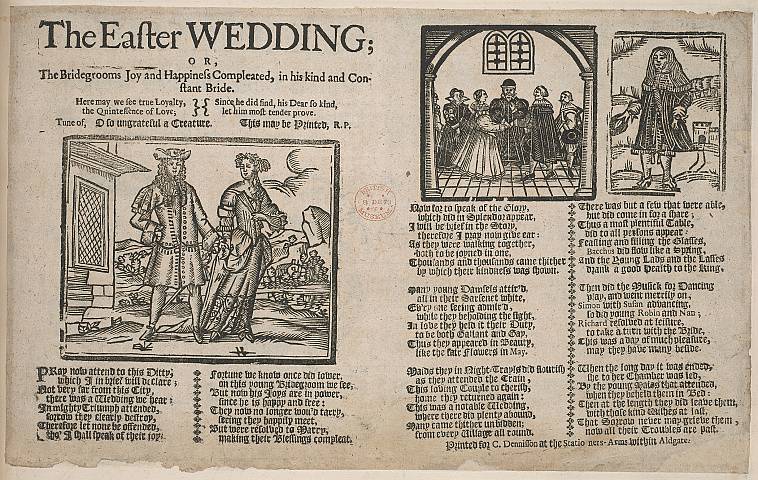 The Easter WEDDING;
OR,
The Bridegrooms Joy and Happiness Compleated, in his kind and Con-
stant Bride.
Here may we see true Loyalty,
the Quintessence of Love;
Since he did find, his Dear so kind,
let him most tender prove.
Tune of, O so ungrateful a Creature. This may be Printed, R. P.
PRay now attend to this Ditty,
which I in brief will declare;
Not very far from this City,
there was a Wedding we hear:
In mighty Triumph attended,
sorrow they clearly destroy,
Therefore let none be offended,
I shall speak of their joy.
Fortune we know once did lower,
on this young Bridegroom we see,
But now his Joys are in power,
since he is happy and free:
They now no longer wou'd tarry,
seeing they happily meet,
But were resolved to Marry,
making their Blessings compleat.
Now for to speak of the Glory,
which did in Splendor appear,
I will be brief in the Story,
therefore I pray now give ear:
As they were walking together,
both to be joyned in one,
Thousands and thousands came thither
by which their kindness was shown.
Many young Damsels attir'd,
all in their Sarsenet white,
Ev'ry one seeing admir'd,
while they beholding the sight,
In love they held it their Duty,
to be both Gallant and Gay,
Thus they appeared in Beauty,
like the fair Flowers in May.
Maids they in Night-Trayls did flourish
as they attended the Train;
This loving Couple to cherish,
home they returned again:
This was a notable Wedding,
where there did plenty abound,
Many came thither unbidden;
from every Village all round.
There was but a few that were able,
but did come in for a share;
Thus a most plentiful Table,
did to all persons appear:
Feasting and filling the Glasses,
Bacchus did flow like a Spring,
And the Young Lads and the Lasses
drank a good Health to the King.
Then did the Musick for Dancing
play, and went merrily on,
Simon with Susan advancing,
so did young Robin and Nan;
Richard resolved at leisure,
to take a turn with the Bride,
This was a day of much pleasure;
may they have many beside.
When the long day it was ended,
she to her Chamber was led,
By the young Males that attended,
when they beheld them in Bed:
Then at the length they did leave them,
with those kind Wishes at last,
That Sorrow never may grieve them,
now all their Troubles are past.
Printed for C. Dennisson at the Statio ners-Arms within Aldgate.